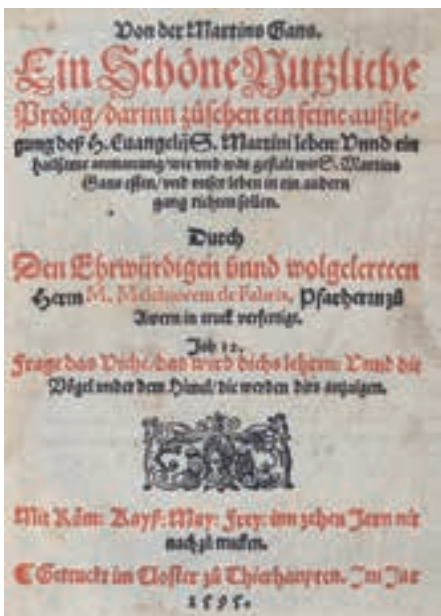 Von der Martins Gans.
Ein Schöne Nutzliche
Predig / darinn zůsehen ein feine außle-
gung deß H. Euangelij S. Martini leben: Vnnd ein
hailsame anmanung / wie vnd was gestalt wir S. Martins
Gans essen / vnd vnser leben in ein andern
gang richten sollen.
Durch
Den Ehrwürdigen vnnd wolgelerten
Herrn M. Melchiorem de Fabris, Pfarherrn zů
in truck verfertigt.
Job 12.
Frage das Vihe / das wird dichs lehren: Vnnd die
Vögel vnder dem Himel / die werden dirs anzaigen.
Mit Röm: Kayß: May: Frey: inn zehen Jarn nit
nach zů trucken.
Getruckt im Closter zů Thierhaupten. Im Jar
1595.